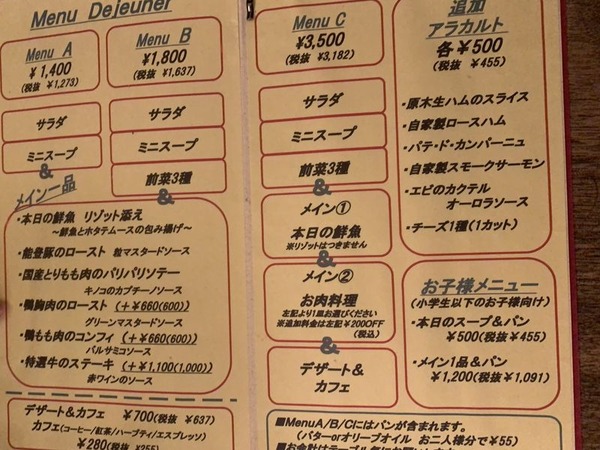 Menu Dejeuner
Menu A
￥1,400
(税抜 ￥1,273)
サラダ
ミニスープ
Menu B
￥1,800
(税抜 ￥1,637)
サラダ
ミニスープ
前菜3種
&
&
メイン一品
・本日の鮮魚 リゾット添え
～鮮魚とホタテムースの包み揚げ～
・能登豚のロースト 粒マスタードソース
・国産とりもも肉のパリパリソテー
キノコのカプチーノソース
・鴨胸肉のロースト (+￥660(600))
グリーンマスタードソース
・鴨もも肉のコンフィ (+￥660(600))
バルサミコソース
・特選牛のステーキ (+￥1,100(1,000))
赤ワインのソース
デザート&カフェ ￥700(税抜 ￥637)
カフェ(コーヒー/紅茶/ハーブティ/エスプレッソ)
￥280(税抜 ￥255)
Menu C
￥3,500
(税抜 ￥3,182)
サラダ
ミニスープ
前菜3種
&
メイン①
本日の鮮魚
※リゾットはつきません
&
メイン②
お肉料理
左記より1皿お選びください
※追加料金は左記￥200OFF
(税込)
&
デザート&
カフェ
追加
アラカルト
各￥500
(税抜 ￥455)
・原木生ハムのスライス
・自家製ロースハム
・パテ・ド・カンパーニュ
・自家製スモークサーモン
・エビのカクテル
オーロラソース
・チーズ1種(1カット)
お子様メニュー
(小学生以下のお子様向け)
・本日のスープ&パン
￥500(税抜￥455)
・メイン1品&パン
￥1,200(税抜￥1,091)
■MenuA/B/Cにはパンが含まれます。
(バターorオリーブオイル お二人様分で￥55)
■お会計はテーブル毎にお願いします